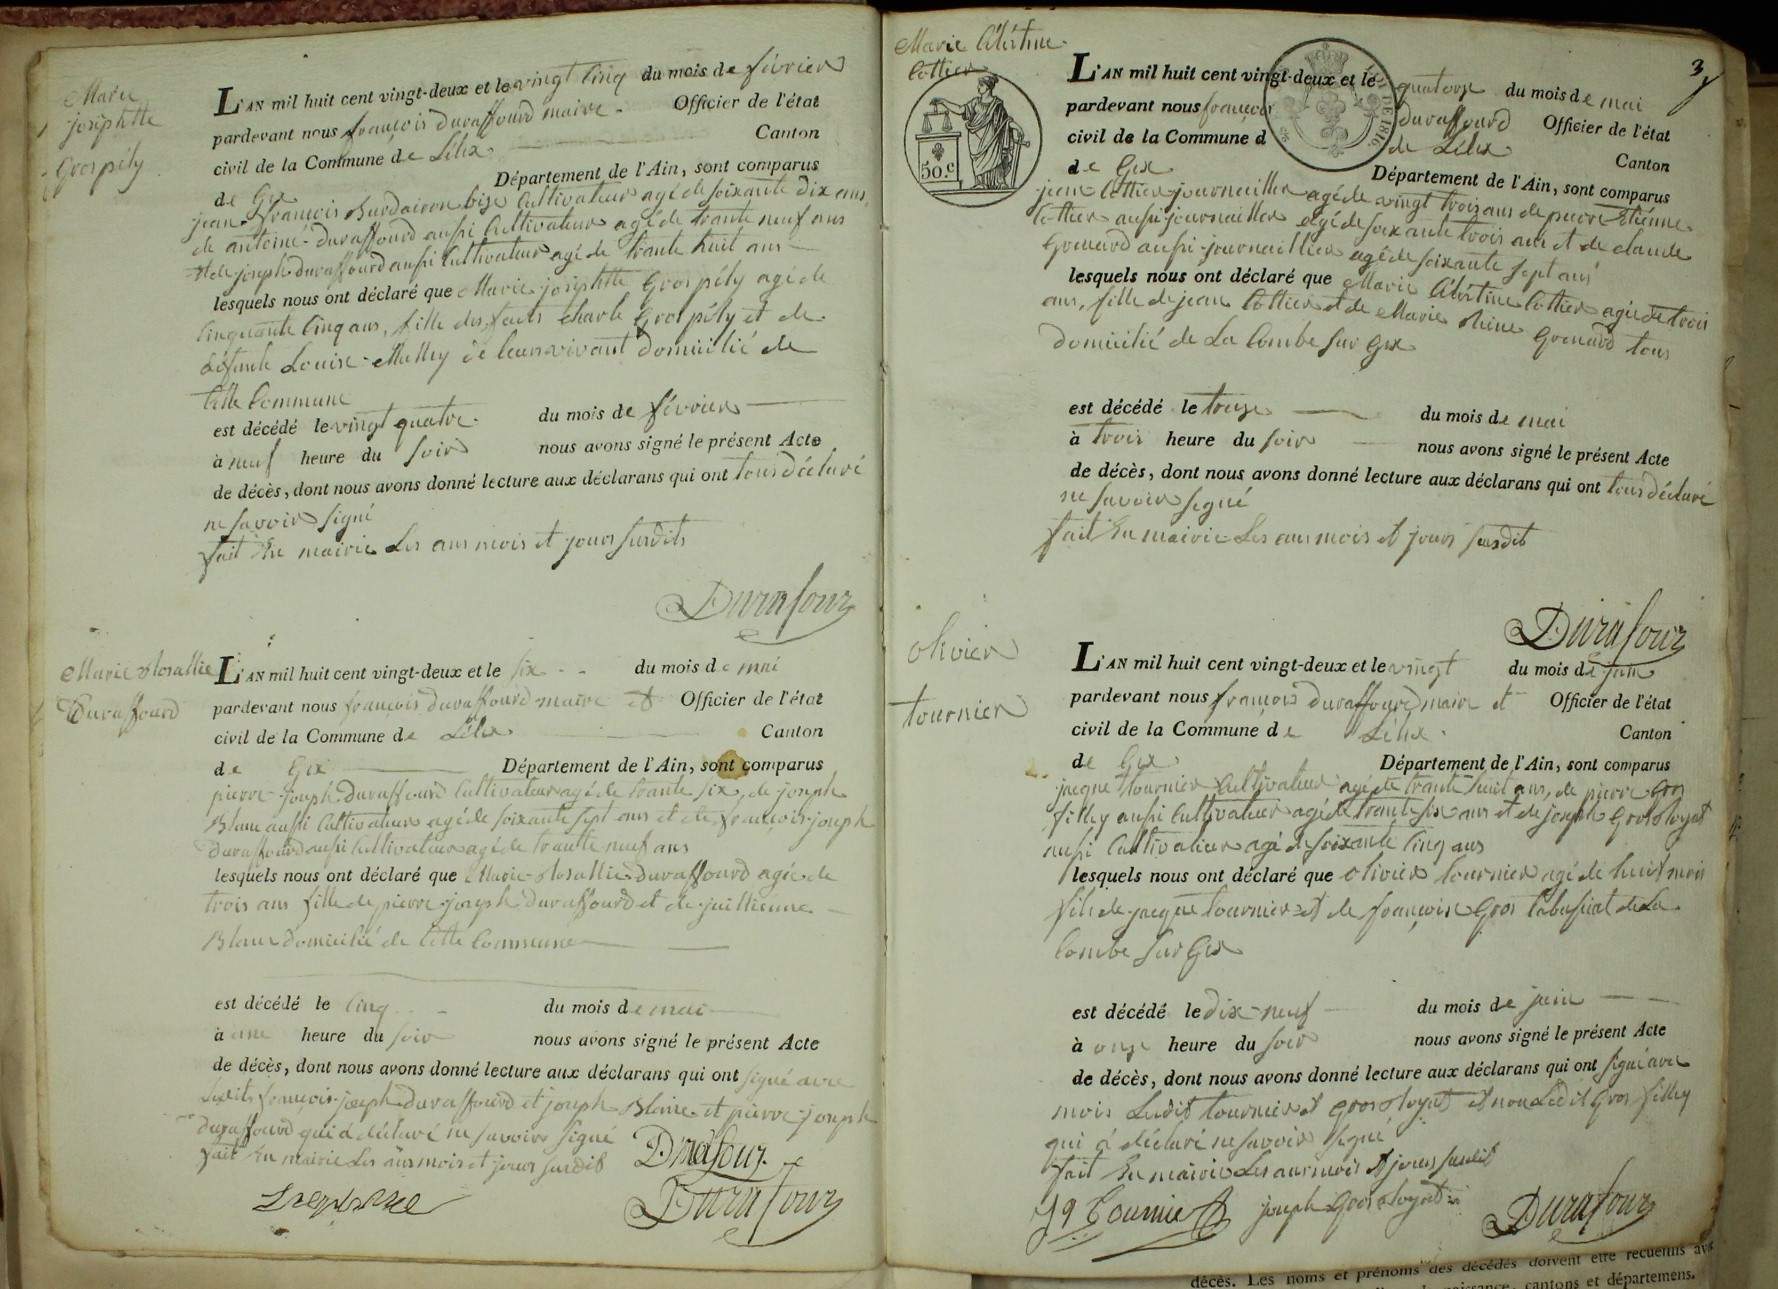 Marie
josephtte
Grospély
L'AN mil huit cent vingt-deux et le vingt cinq du mois de février
pardevant nous françois duraffourd maire. Officier de l'état
civil de la Commune de Lélex Canton
de Gex Département de l'Ain, sont comparus
jean françois cultivateur agé de soixante dix ans,
de antoine duraffourd aussi cultivateur agé de trante neuf ans
et de joseph duraffourd aussi cultivateur agé de trante huit ans
lesquels nous ont déclaré que Marie josephtte Grospély agé de
cinquante cinq ans, fille des charle Grospély et de
défunte Louise de leurs vivant domicilié de
cette Commune
est décédé le vingt quatre du mois de février
à neuf heure du soir nous avons signé le présent Acte
de décès, dont nous avons donné lecture aux déclarans qui ont tous déclaré
ne savoir signé
fait En mairie Les ans mois et jours susdits
Durafour
Marie Rosallie
Duraffourd
L'AN mil huit cent vingt-deux et le six du mois de mai
pardevant nous françois duraffourd maire et Officier de l'état
civil de la Commune de Lélex Canton
de Gex Département de l'Ain, sont comparus
pierre joseph duraffourd cultivateur agé de trante six, de joseph
Blanc aussi cultivateur agé de soixante sept ans et de françois joseph
duraffourd aussi cultivateur agé de trante neuf ans
lesquels nous ont déclaré que Marie Rosallie duraffourd agé de
trois ans fille de pierre joseph duraffourd et de juillienne
Blanc domicilié de cette Commune
est décédé le cinq du mois de mai
à une heure du soir nous avons signé le présent Acte
de décès, dont nous avons donné lecture aux déclarans qui ont signé avec
susdits françois joseph duraffourd et joseph Blanc et pierre joseph
duraffourd qui a déclaré ne savoir signé
fait En mairie Les ans mois et jours susdit
Durafour
Durafour
3
Marie Célestine
Cottier
50. c
L'AN mil huit cent vingt-deux et le quatorze du mois de mai
pardevant nous françois duraffourd Officier de l'état
civil de la Commune de Lélex Canton
de Gex Département de l'Ain, sont comparus
jean Cottier journaillier agé de vingt trois ans de pierre Etiénne
Cottier aussi journaillier agé de soixante trois ans et de claude
Grenard aussi journaillier agé de soixante sept ans
lesquels nous ont déclaré que Marie Célestine Cottier agé de trois
ans, fille de jean Cottier et de Marie Reine Grenard tous
domicilié de La Combe sur Gex
est décédé le treuze du mois de mai
à trois heure du soir nous avons signé le présent Acte
de décès, dont nous avons donné lecture aux déclarans qui ont tous déclaré
ne savoir signé
fait En mairie Les ans mois et jours susdit
Durafour
olivier
tournier
L'AN mil huit cent vingt-deux et le vingt du mois de juin
pardevant nous françois duraffourd maire et Officier de l'état
civil de la Commune de Lélex Canton
de Gex Département de l'Ain, sont comparus
jacque tournier Cultivateur agé de trante huit ans, de pierre Gros
filley aussi Cultivateur agé de trante six ans et de joseph Gros Royat
aussi Cultivateur agé de soixante cinq ans
lesquels nous ont déclaré que olivier tournier agé de huit mois
fils de jacque tournier et de françoise Gros de La
Combe sur Gex
est décédé le dix-neuf du mois de juin
à onze heure du soir nous avons signé le présent Acte
de décès, dont nous avons donné lecture aux déclarans qui ont signé avec
mois Ledit tournier et Gros Royat et non Ledit Gros filley
qui a déclaré ne savoir signé
fait En mairie Les ans mois et jours susdit
Jq Tournier joseph Gros Royat Durafour
décès. Les noms et prénoms des décédés doivent être recueillis
cantons et départemens.